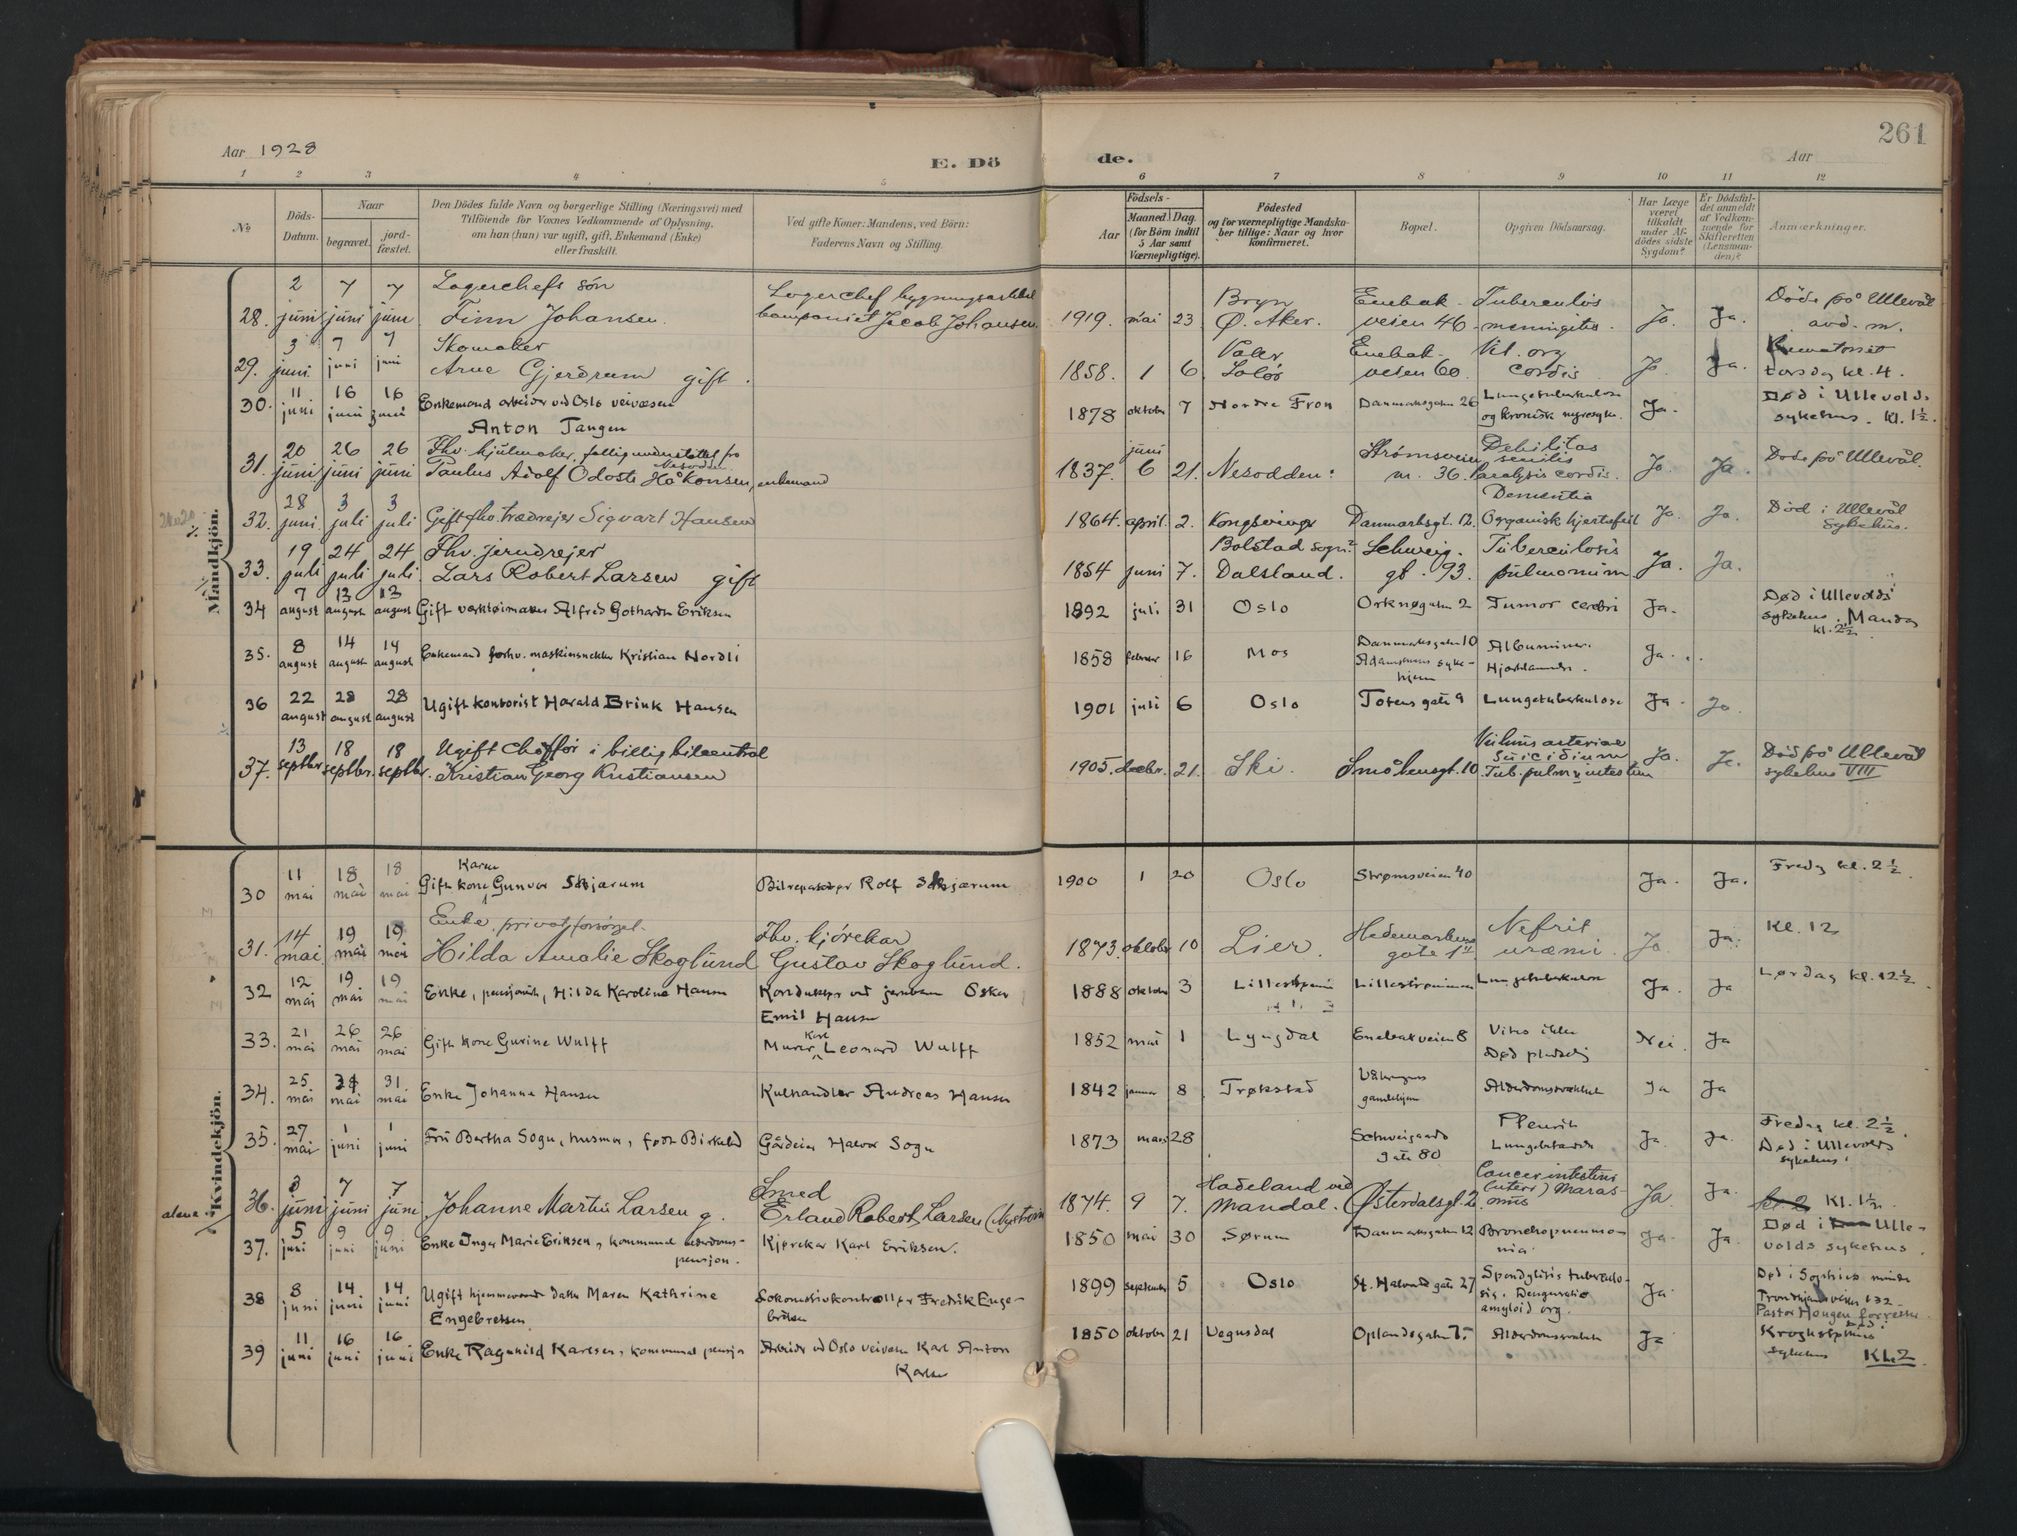 Aar 1928
E. Dö
de.
Aar
261
1 2 3 4 5 6 7 8 9 10 11 12
№
Döds-
Datum.
Naar
begravet.
jord-
fæstet.
Den Dödes fulde Navn og borgerlige Stilling (Næringsvei) med
Tilföiende for Voxnes Vedkommende af Oplysning,
om han (hun) var ugift, gift, Enkemand (Enke)
eller fraskilt.
Ved gifte Koner: Mandens, ved Börn:
Faderens Navn og Stilling.
Födsels-
Aar
Maaned
Dag.
(for Börn indtil
5 Aar samt
Værnepligtige).
Födested
og for værnepligtige Mandska-
ber tillige: Naar og hvor
konfirmeret.
Bopæl.
Opgiven Dödsaarsag.
Har Læge
været
tilkaldt
under Af-
dödes sidste
Sygdom?
Er Dödsfal-
det anmeldt
af Vedkom-
mende for
Skifteretten
(Lensman-
den)?
Anmærkninger.
Mandkjön.
2 7 7 Lagerchefs søn
Lagerchef bygningsartikel
28. juni juni juni Finn Johansen.
kompaniet Jacob Johansen
1919. mai 23
Bryn
Ø. Aker.
Enebak-
veien 46
Tuberculøs
meningitis.
Ja. Ja.
Døde på Ullevål
avd. m.
3 7 7 Skomaker
29. juni juni juni Arne Gjerdrum gift.
1858. 1 6
Våler
Solør
Enebak-
veien 60.
Vit. org
cordis
Ja. Ja.
Krematoriet
torsdag kl. 4.
11 16 16
30. juni juni juni Enkemand arbeider ved Oslo veivæsen
Anton Tangen
1878 oktober 7 Nordre Fron Danmarksgaten 26
Lungetuberkulose
og kronisk nyresyke.
Ja.
Død i Ullevolds
sykehus. Kl. 1½.
20 26 26 Fhv. hjulmaker, fattigunderstøttet fra
Nesodden
31. juni juni juni Paulus Adolf Odoste Håkonsen, enkemand
1837. juni 6 21. Nesodden:
Strømsveien
nr. 36.
Debilitas
senilis
Paralysis cordis.
Ja Ja.
Døde på Ullevål.
28 3 3
32. juni. juli juli Gift fhv. trædrejer Sigvart Hansen
1864. april. 2. Kongsvinger Danmarksgt. 12.
Dementia
Organisk hjertefeil
Ja. Ja.
Død i Ullevål
Sykehus.
19 24 24 Fhv. jerndrejer
33. juli juli juli. Lars Robert Larsen gift
1854 juni 7.
Bolstad sogn?
Dalsland.
Schweig.
gt. 93.
Tuberculosis
pulmonum
Ja. Ja.
7 13 13
34 august august august Gift verktøimaker Alfred Gothardt Eriksen
1892 juli 31 Oslo Orknøgaten 2 Tumor cerebri Ja.
Død i Ullevolds
sykehus. Mandag
kl. 2½
8 14 14
35. august august august Enkemand forhv. maskinsnekker Kristian Nordli
1858 februar 16 Mos
Danmarksgaten 10
Ja.
22 28 28
36 august august august Ugift kontorist Harald Brink Hansen
1901 juli 6 Oslo Totens gate 9 Lungetuberkulose Ja Ja.
13 18 18 Ugift chaffør i billig bilcentral
37. septbr. septbr. septbr. Kristian Georg Kristiansen
1905. decbr. 21. Ski. Smålensgt. 10
Suicidium
Tub. pulm intestin
Ja. Ja.
Død på Ullevål
sykehus VIII
Kvindekjön.
11 18 18 Karen
30 mai mai mai Gift kone Gunvor Skjærum Bilreparatør Rolf Skjærum
1900 1 20 Oslo Strømsveien 40 Ja. Ja.
Fredag kl. 2½.
Enke, privat forsørget.
14 19 19 Fhv. kjørekar
31. mai. mai mai Hilda Amalie Skoglund Gustav Skoglund.
1873. oktober 10 Lier.
Hedemarkens
gate 1
Nefrit
uræmi.
Ja. Ja.
Kl. 12
12 19 19
32 mai mai mai Enke, pensjonist, Hilda Karoline Hansen Konduktør ved jernbanen Oskar
Emil Hansen
1888 oktober 3 Lillestrømmen Lillestrømmen Lungetuberkulose Ja. Ja
Lørdag kl. 12½.
21 26 26
33. mai mai mai Gift kone Gurine Wulff Murer Karl Leonard Wulff
1852 mai 1 Lyngdal Enebakveien 8
Vites ikke
Død pludselig
Nei. Ja
25 31 31
34. mai mai mai Enke Johanne Hansen Kulhandler Andreas Hansen
1842 januar 8 Trøkstad
Vålerengens
gamlehjem
Alderdomssvakhet Ja Ja
27 1 1
35. mai juni juni Fru Bertha Sogn, husmor, født Birkeland Gårdeier Halvor Sogn
1873 mars 28
Schweigaards
gate 80
Pleurit
Ja. Ja.
Fredag kl. 2½.
Død i Ullevolds
sykehus.
3 7 7 Smed
36. juni juni juni Johanne Martin Larsen g. Erland Robert Larsen (Nystrøm
1874. 9 7.
Hadeland ved
Mandal.
Østerdalsgt. 2.
Cancer intestini
(uteri) Maras-
mus
Ja Ja.
kl. 2 Kl. 1½.
5 9 9
37. juni juni juni Enke Inger Marie Eriksen, kommunal alderdoms-
pensjon. Kjørekar Karl Eriksen.
1850 mai 30 Sørum Danmarksgaten 12
Bronchopneumo-
nia.
Ja. Ja.
Død i Ulle-
volds sykehus.
8 14 14
38 juni juni juni Ugift hjemmeværende datter Maren Kathrine
Engebretsen. Lokomotivkontrollør Fredrik Enge-
bretsen
1899 september 5 Oslo St. Halvards gate 27
Spondylitis tuberculo-
sis. Degeneratio
amyloid org.
Ja.
Død i Sophies minde
Trondhjemsveien 132
Pastor Haugen forrettet
11 16 16
39 juni juni juni Enke Ragnhild Karlsen, kommunal pensjon Arbeider ved Oslo veivæsen Karl Anton
Karlsen
1850 oktober 21 Vegusdal Oplandsgaten 7 Alderdomssvakhet Ja
Død i
Krohgstøttens
sykehus Kl. 2